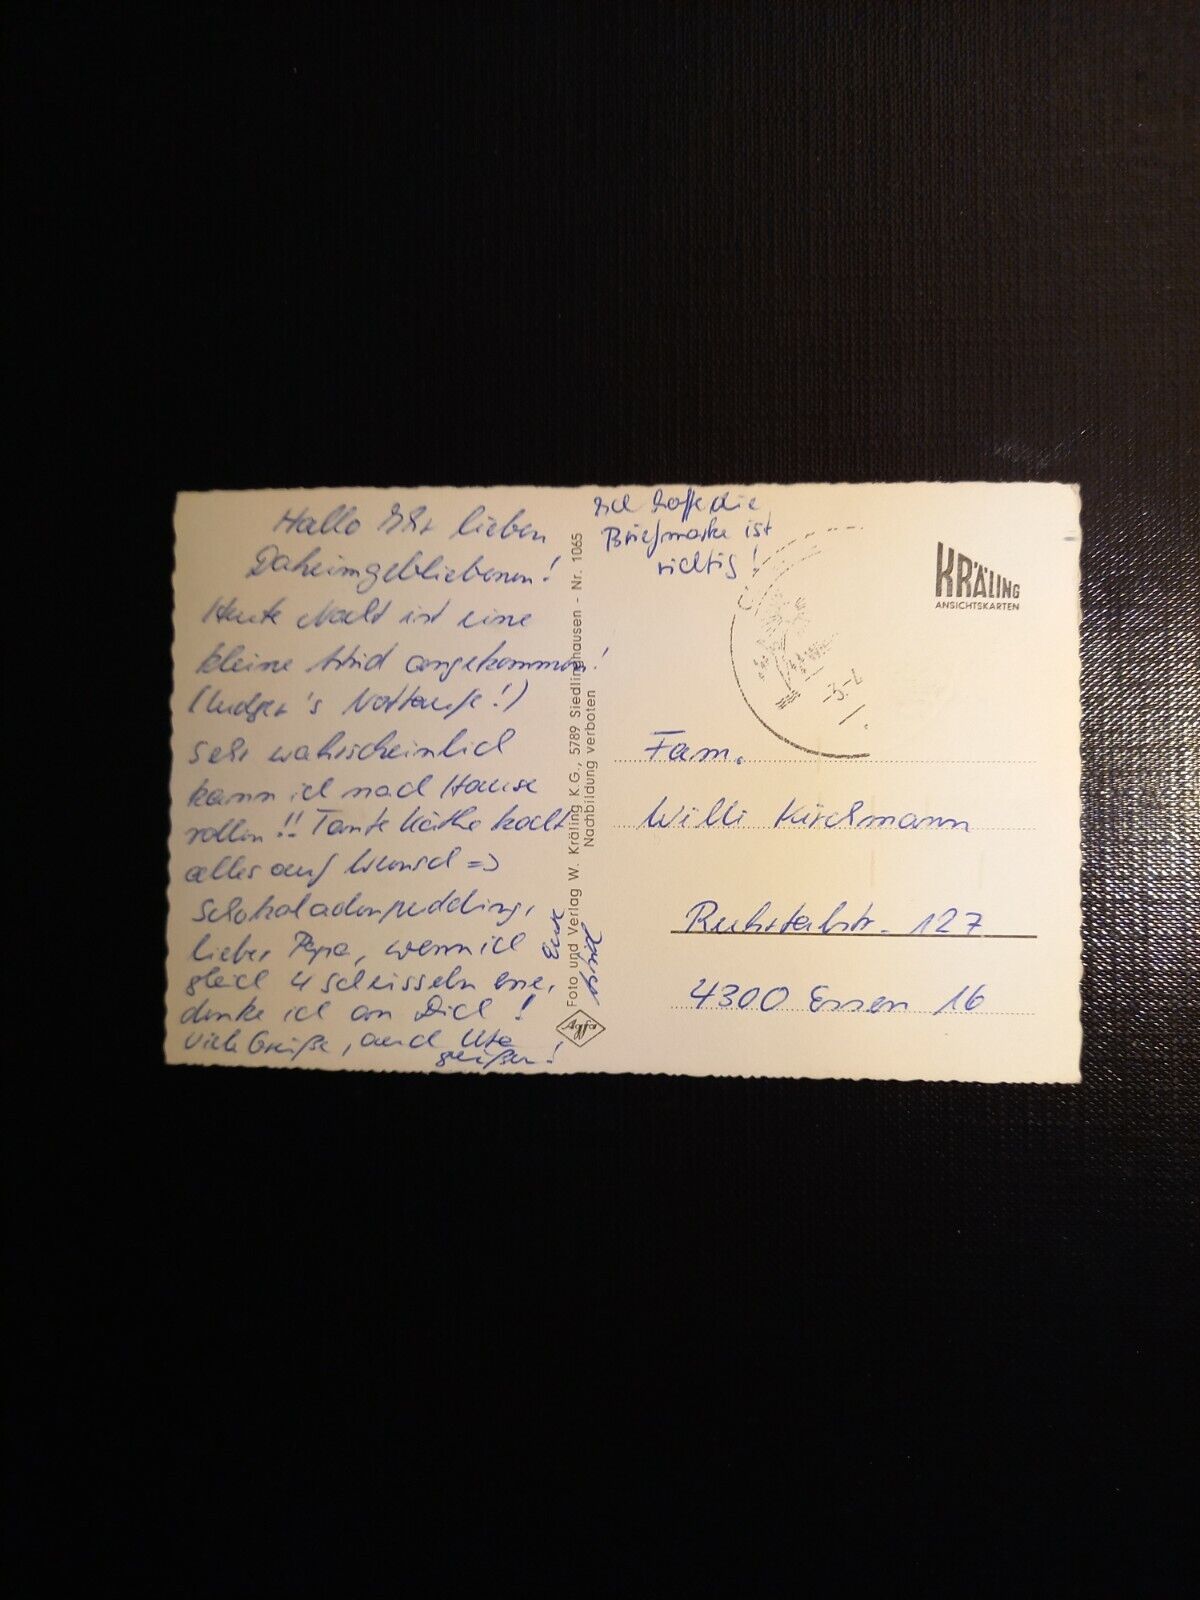 Hallo Ihr lieben
Daheimgebliebenen!
Heute Nacht ist eine
kleine angekommen!
(Ludger's !)
Sehr wahrscheinlich
kann ich nach Hause
rollen!! Tante Käthe kocht
alles auf Wunsch =>
Schokoladenpudding,
lieber Papa, wenn ich
gleich 4 Schüsseln esse,
denke ich an Dich!
Viele Grüße, auch Ute
grüßen!
Eure
Foto und Verlag W. Kräling K.G., 5789 Siedlinghausen - Nr. 1065
Nachbildung verboten
Agfa
Ich hoffe die
Briefmarke ist
richtig!
KRÄLING
ANSICHTSKARTEN
-3.-
Fam.
Willi Kirchmann
Ruhrtalstr. 127
4300 Essen 16